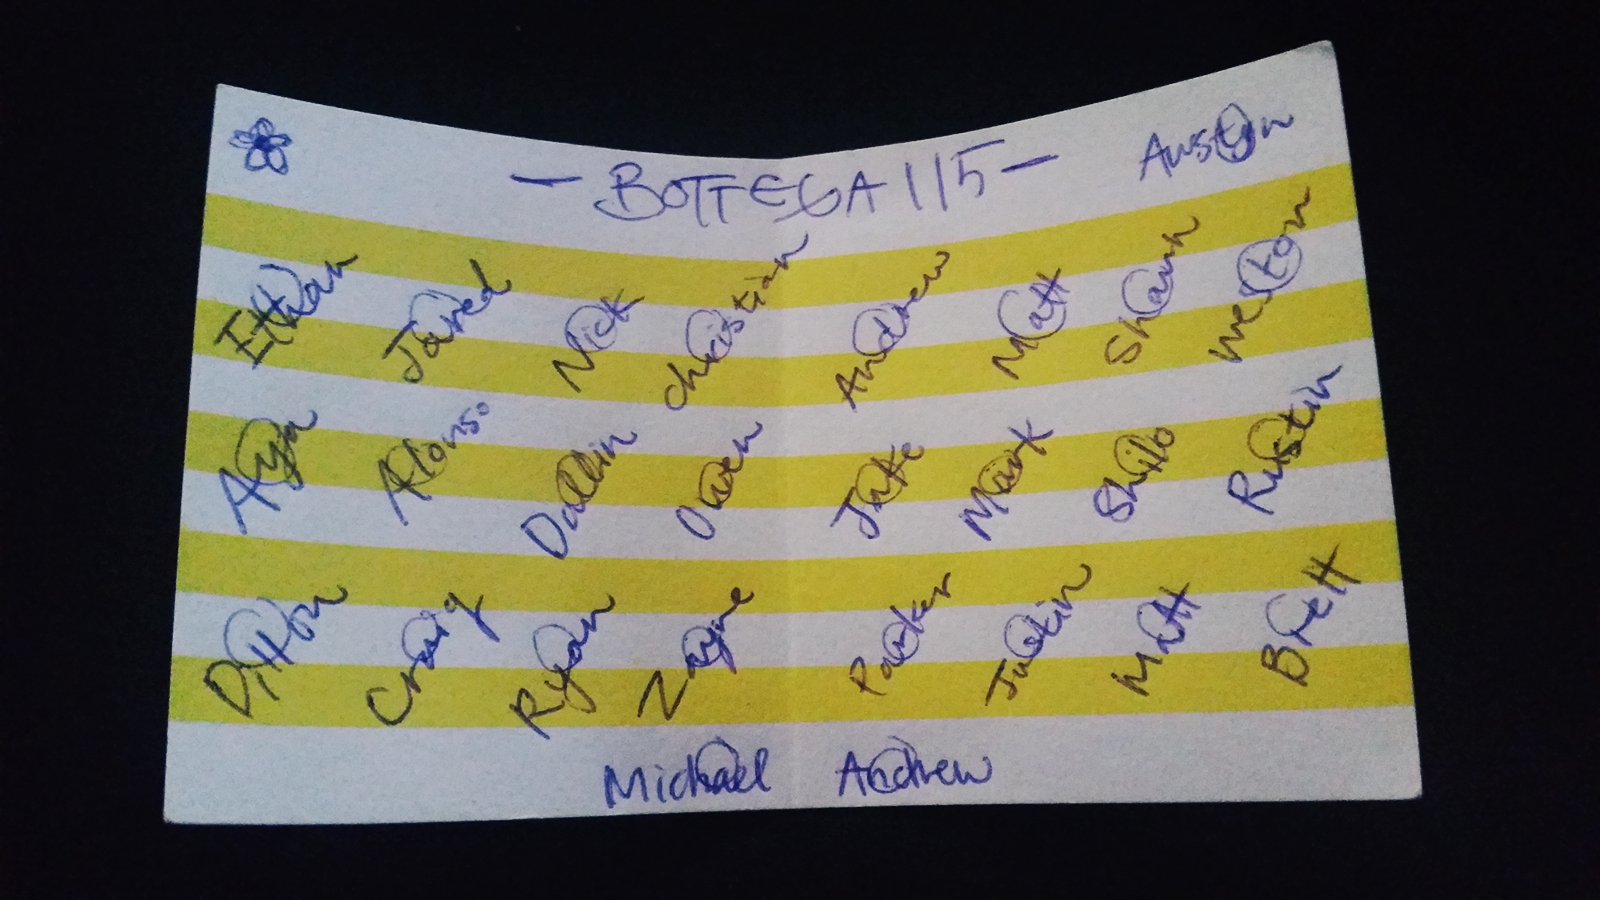 - BOTTEGA 115 - Austyn
Ethan Jared Nick Christian Andrew Matt Shawn Weston
Alonso Dallin Owen Jake Mark Shilo Rustin
Ditton Craig Ryan Zayne Parker Justin Matt Brett
Michael Andrew